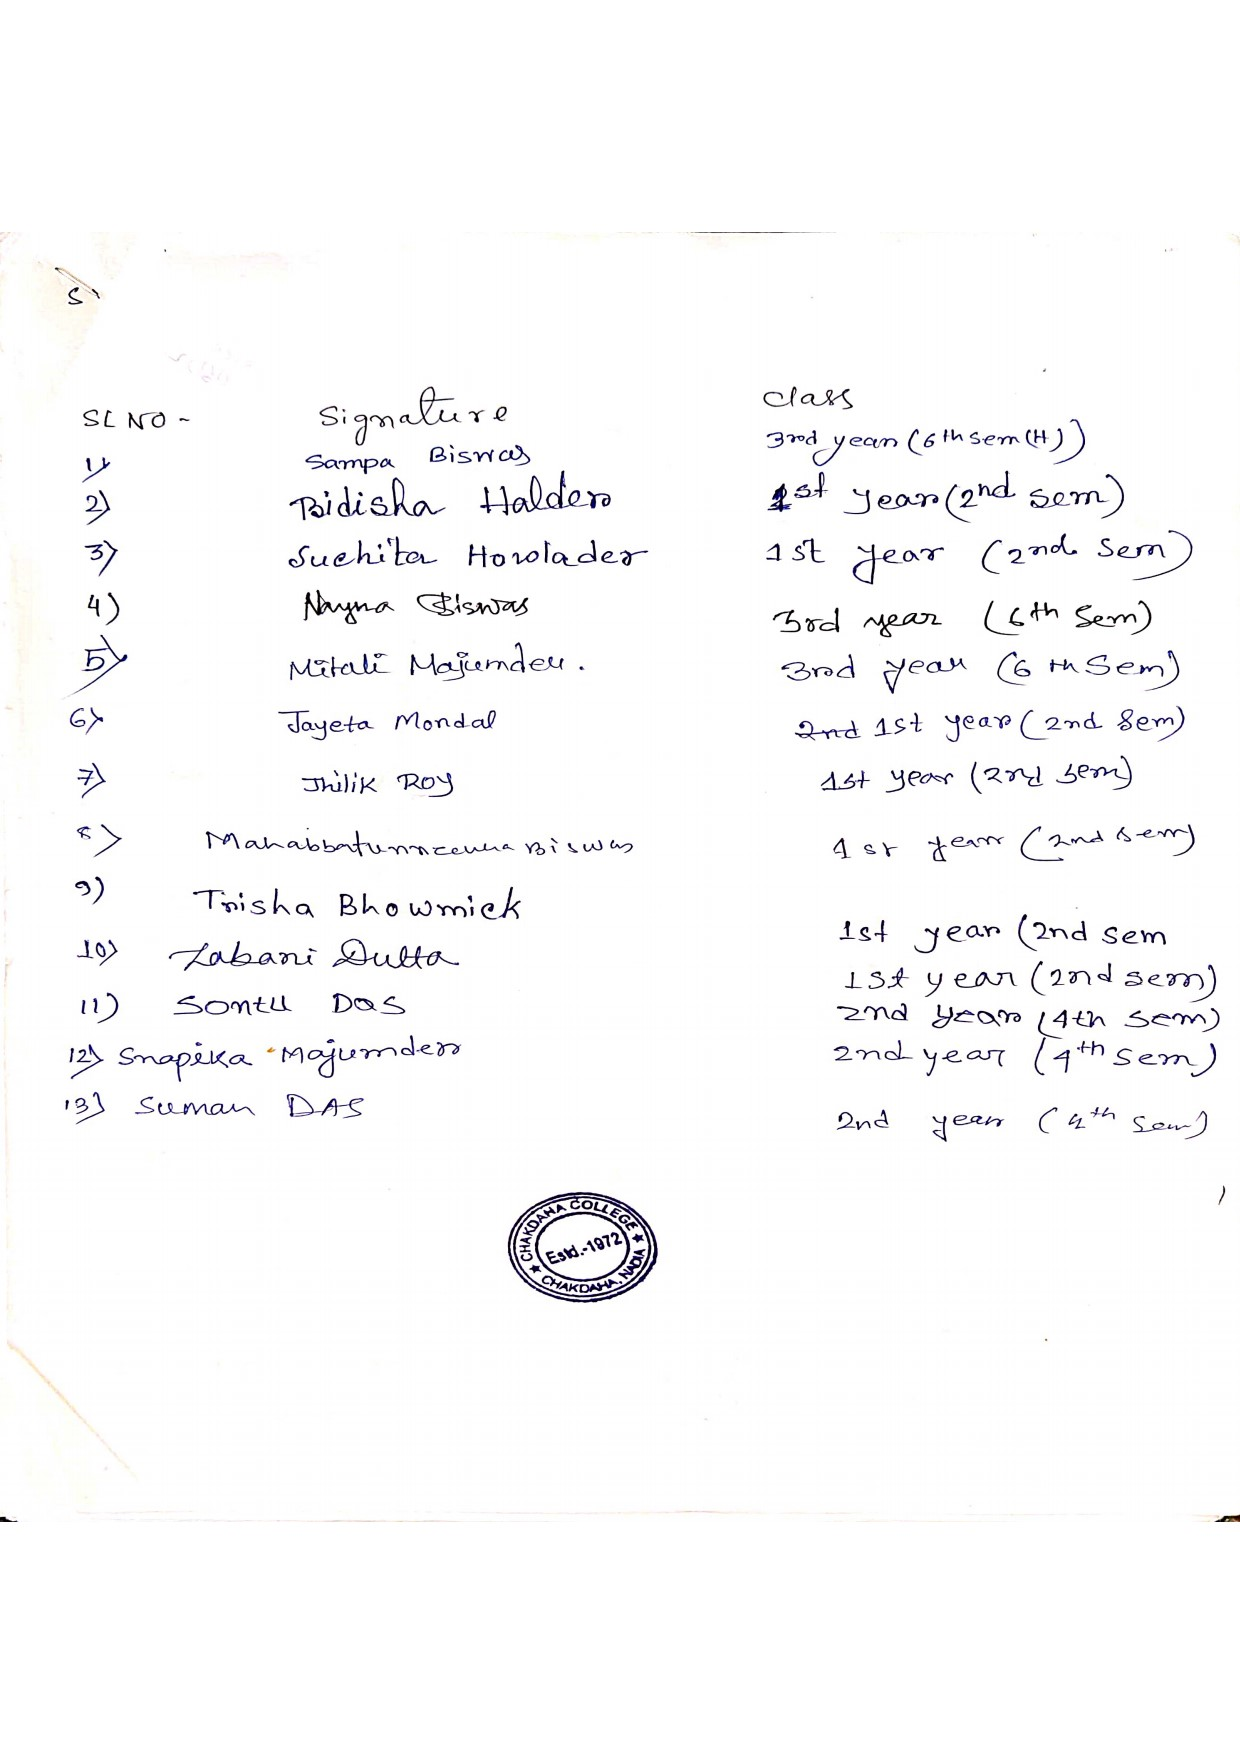 S
SL NO - Signature Class
1) Sampa Biswas 3rd year (6th sem (H))
2) Bidisha Halder 1st year (2nd sem)
3) Suchita Howlader 1st year (2nd. Sem)
4) Nayna Biswas 3rd year (6th Sem)
5) Mitali Majumder. 3rd year (6 th Sem)
6) Jayeta Mondal 2nd 1st year (2nd Sem)
7) Jhilik Roy 1st year (2nd sem)
8) Biswas 1st year (2nd sem)
9) Trisha Bhowmick 1st year (2nd sem
10) Labani Dutta 1st year (2nd sem)
11) Sontu Das 2nd year (4th sem)
12) Majumder 2nd year (4th sem)
13) Suman DAS 2nd year (4th sem)
CHAKDAHA COLLEGE
Estd.-1972
★ CHAKDAHA, NADIA ★